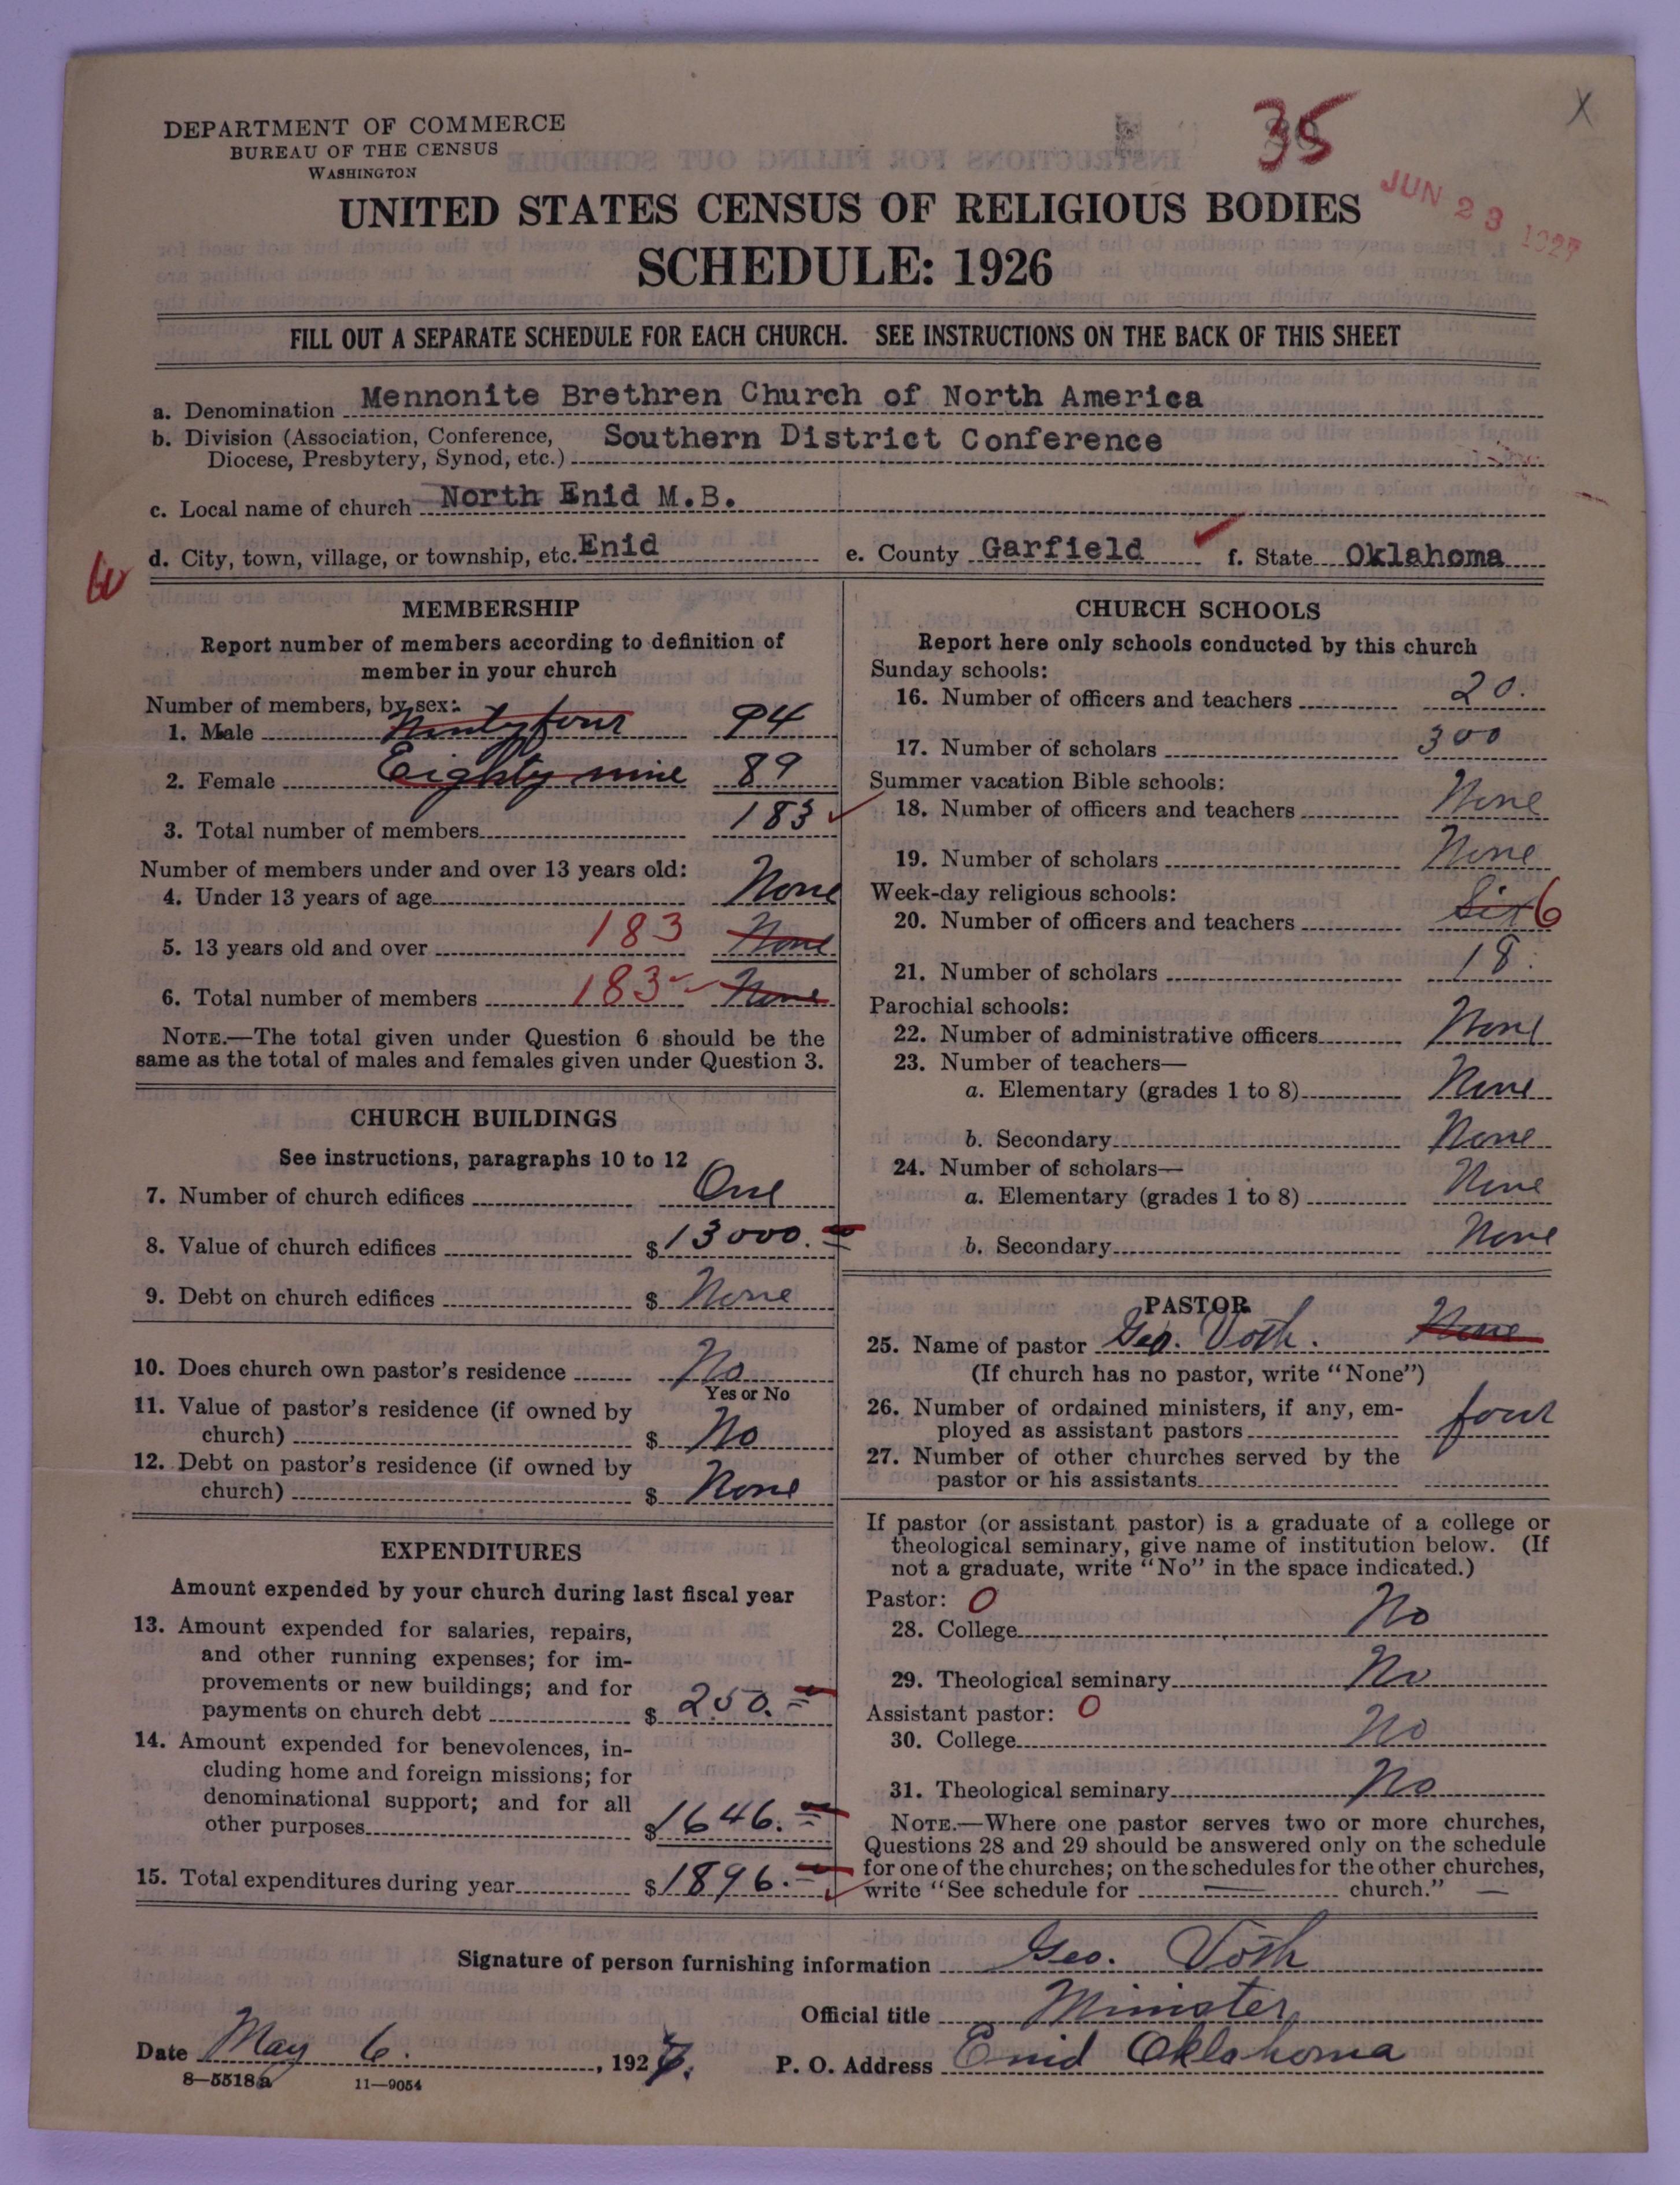 35
X
DEPARTMENT OF COMMERCE
BUREAU OF THE CENSUS
WASHINGTON
JUN 23 1927
UNITED STATES CENSUS OF RELIGIOUS BODIES
SCHEDULE: 1926
FILL OUT A SEPARATE SCHEDULE FOR EACH CHURCH. SEE INSTRUCTIONS ON THE BACK OF THIS SHEET
a. Denomination Mennonite Brethren Church of North America
b. Division (Association, Conference, Diocese, Presbytery, Synod, etc.) Southern District Conference
c. Local name of church North Enid M.B.
d. City, town, village, or township, etc. Enid e. County Garfield f. State Oklahoma
MEMBERSHIP
Report number of members according to definition of
member in your church
Number of members, by sex:
1. Male Ninty four 94
2. Female Eighty nine 89
3. Total number of members 183
Number of members under and over 13 years old:
4. Under 13 years of age None
5. 13 years old and over 183 None
6. Total number of members 183 None
NOTE.—The total given under Question 6 should be the
same as the total of males and females given under Question 3.
CHURCH BUILDINGS
See instructions, paragraphs 10 to 12
7. Number of church edifices One
8. Value of church edifices $ 13000.
9. Debt on church edifices $ None
10. Does church own pastor's residence No
Yes or No
11. Value of pastor's residence (if owned by
church) $ No
12. Debt on pastor's residence (if owned by
church) $ None
EXPENDITURES
Amount expended by your church during last fiscal year
13. Amount expended for salaries, repairs,
and other running expenses; for im-
provements or new buildings; and for
payments on church debt $ 250.
14. Amount expended for benevolences, in-
cluding home and foreign missions; for
denominational support; and for all
other purposes $ 1646.
15. Total expenditures during year $ 1896.
CHURCH SCHOOLS
Report here only schools conducted by this church
Sunday schools:
16. Number of officers and teachers 20.
17. Number of scholars 300
Summer vacation Bible schools:
18. Number of officers and teachers None
19. Number of scholars None
Week-day religious schools:
20. Number of officers and teachers Six 6
21. Number of scholars 18.
Parochial schools:
22. Number of administrative officers None
23. Number of teachers—
a. Elementary (grades 1 to 8) None
b. Secondary None
24. Number of scholars—
a. Elementary (grades 1 to 8) None
b. Secondary None
PASTOR
25. Name of pastor Geo. Voth. None
(If church has no pastor, write "None")
26. Number of ordained ministers, if any, em-
ployed as assistant pastors four
27. Number of other churches served by the
pastor or his assistants
If pastor (or assistant pastor) is a graduate of a college or
theological seminary, give name of institution below. (If
not a graduate, write "No" in the space indicated.)
Pastor: 0
28. College No
29. Theological seminary No
Assistant pastor: 0
30. College No
31. Theological seminary No
NOTE.—Where one pastor serves two or more churches,
Questions 28 and 29 should be answered only on the schedule
for one of the churches; on the schedules for the other churches,
write "See schedule for — church." —
Signature of person furnishing information Geo. Voth
Official title Minister
Date May 6. , 1927. P. O. Address Enid Oklahoma
8—5518a 11—9054